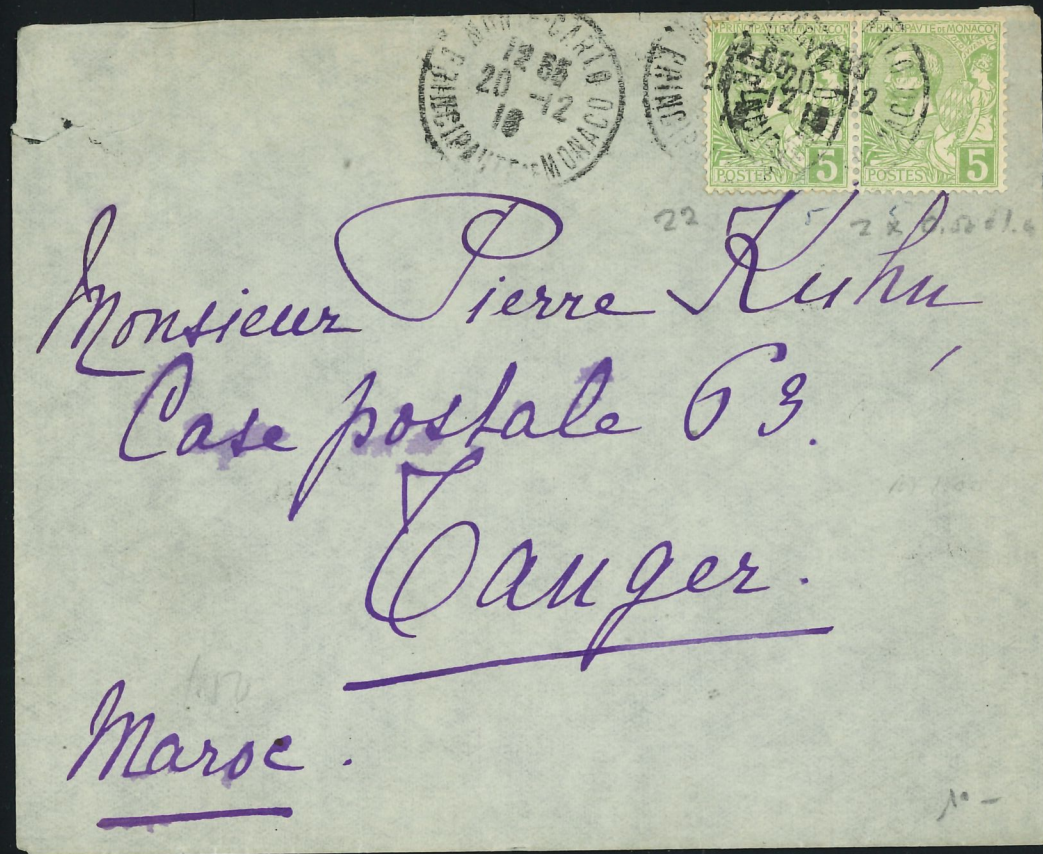 MONTE-CARLO
20 -12
PRINCIPAUTÉ DE MONACO
PRINCIPAUTÉ DE MONACO PRINCIPAUTÉ DE MONACO
POSTES 5 POSTES 5
22
Monsieur Pierre Kuhn
Case postale 63.
Tanger.
Maroc.